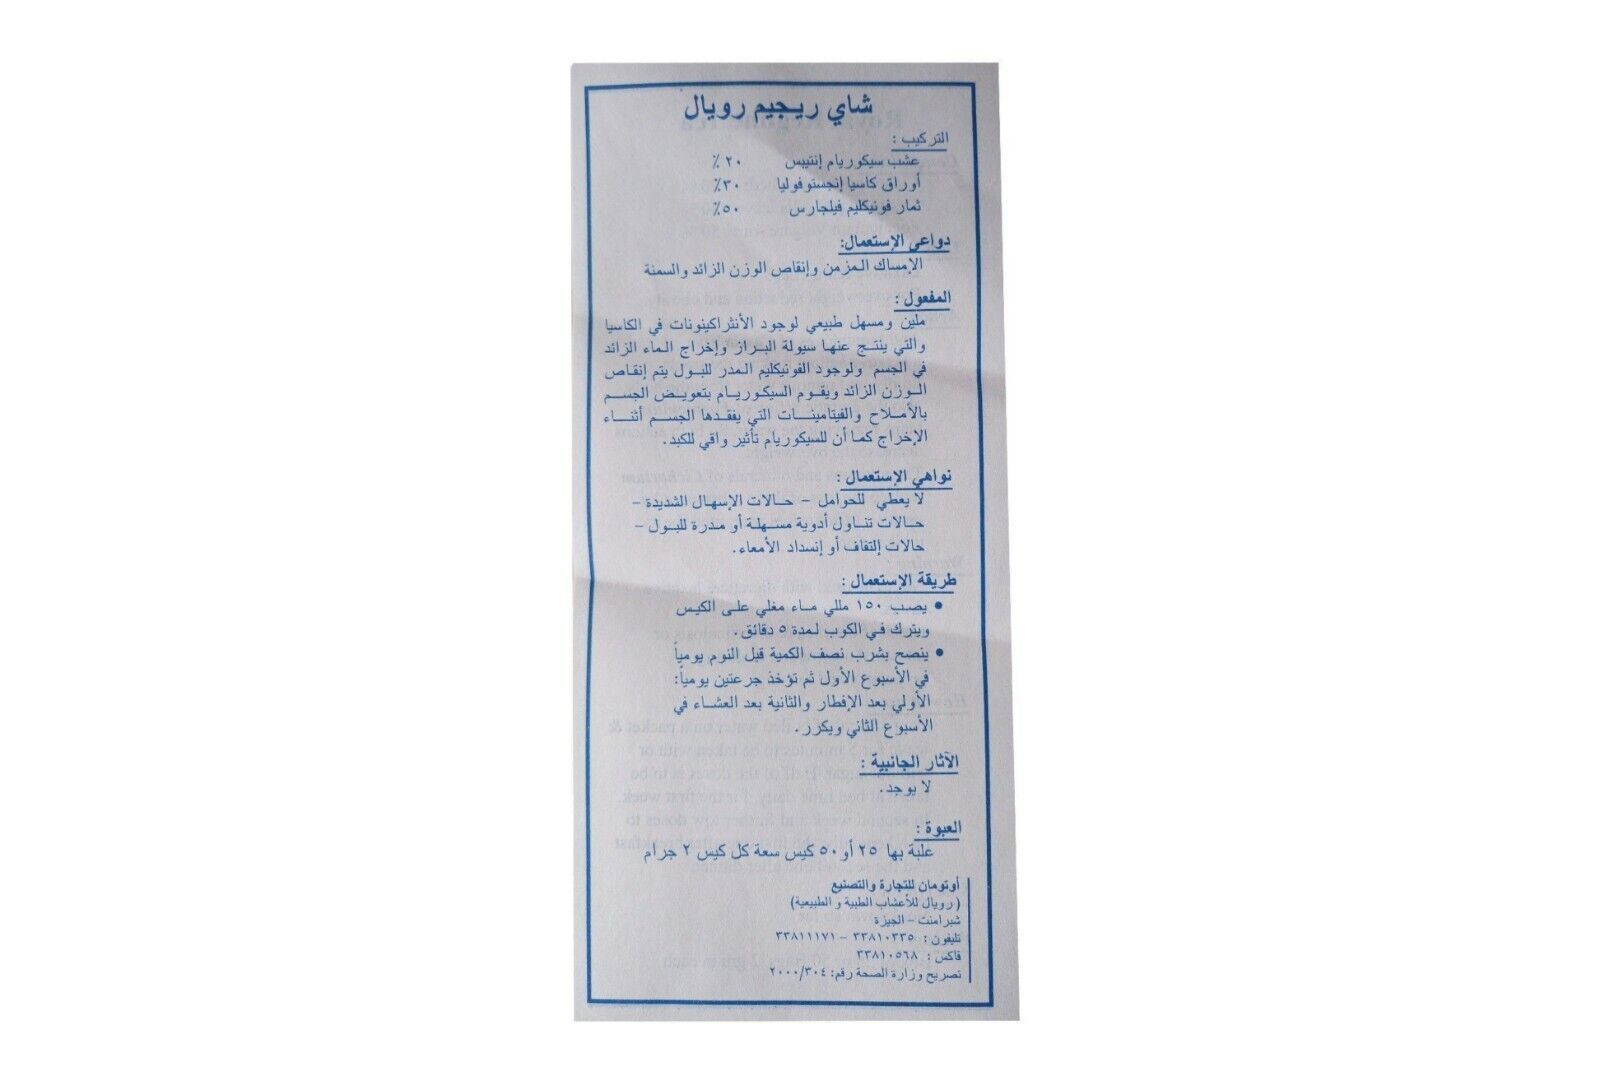 شاي ريجيم رويال
التركيب :
عشب سيكوريام إنتيبس ٢٠ ٪
أوراق كاسيا إنجستوفوليا ٣٠٪
ثمار فونيكليم فيلجارس ٥٠٪
دواعى الإستعمال:
الإمساك المزمن وإنقاص الوزن الزائد والسمنة
المفعول :
ملين ومسهل طبيعي لوجود الأنثراكينونات في الكاسيا
والتي ينتج عنها سيولة البراز وإخراج الماء الزائد
في الجسم ولوجود الفونيكليم المدر للبول يتم إنقاص
الوزن الزائد ويقوم السيكوريام بتعويض الجسم
بالأملاح والفيتامينات التي يفقدها الجسم أثناء
الإخراج كما أن للسيكوريام تأثير واقي للكبد.
نواهي الإستعمال :
لا يعطي للحوامل – حالات الإسهال الشديدة –
حالات تناول أدوية مسهلة أو مدرة للبول –
حالات إلتفاف أو إنسداد الأمعاء.
طريقة الإستعمال :
• يصب ١٥٠ مللي ماء مغلي على الكيس
ويترك في الكوب لمدة ٥ دقائق.
• ينصح بشرب نصف الكمية قبل النوم يومياً
في الأسبوع الأول ثم تؤخذ جرعتين يومياً:
الأولي بعد الإفطار والثانية بعد العشاء في
الأسبوع الثاني ويكرر.
الآثار الجانبية :
لا يوجد.
العبوة :
علبة بها ٢٥ أو ٥٠ كيس سعة كل كيس ٢ جرام
أوتومان للتجارة والتصنيع
( رويال للأعشاب الطبية و الطبيعية)
شبرامنت – الجيزة
تليفون : ٣٣٨١٠٣٣٥ – ٣٣٨١١١٧١
فاكس : ٣٣٨١٠٥٦٨
تصريح وزارة الصحة رقم: ٢٠٠٠/٣٠٤